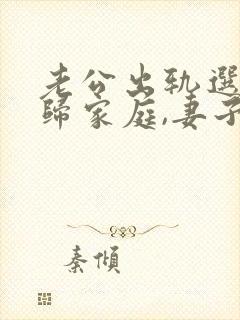 老公出轨選
歸家庭,妻子
秦傾